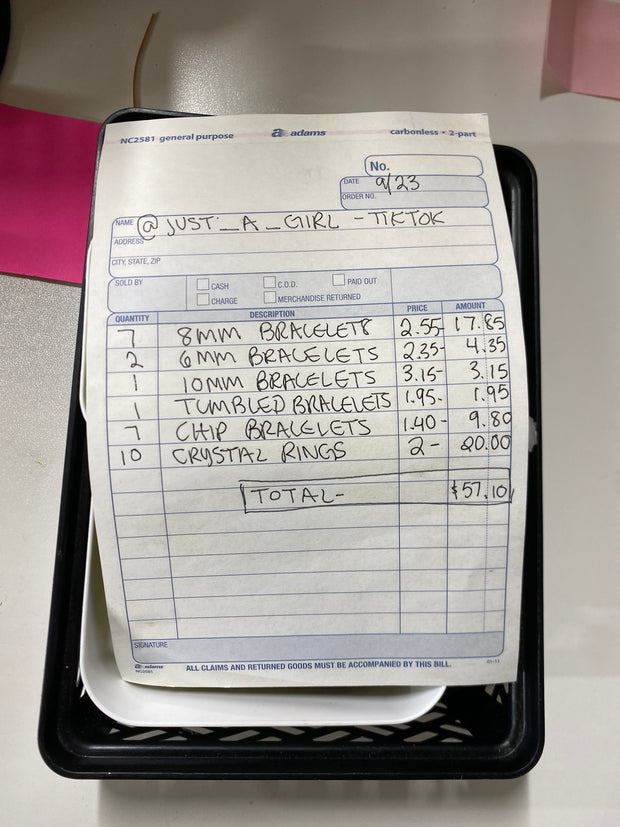 NC2581 general purpose a adams carbonless • 2-part
No.
DATE 9/23
ORDER NO.
NAME @JUST_A_GIRL - TIKTOK
ADDRESS
CITY, STATE, ZIP
SOLD BY CASH C.O.D. PAID OUT
CHARGE MERCHANDISE RETURNED
QUANTITY DESCRIPTION PRICE AMOUNT
7 8MM BRACELETS 2.55- 17.85
2 6MM BRACELETS 2.35- 4.35
1 10MM BRACELETS 3.15- 3.15
1 TUMBLED BRACELETS 1.95- 1.95
7 CHIP BRACELETS 1.40- 9.80
10 CRYSTAL RINGS 2- 20.00
TOTAL- $57.10
SIGNATURE
a adams
NC2581
ALL CLAIMS AND RETURNED GOODS MUST BE ACCOMPANIED BY THIS BILL.
01-11